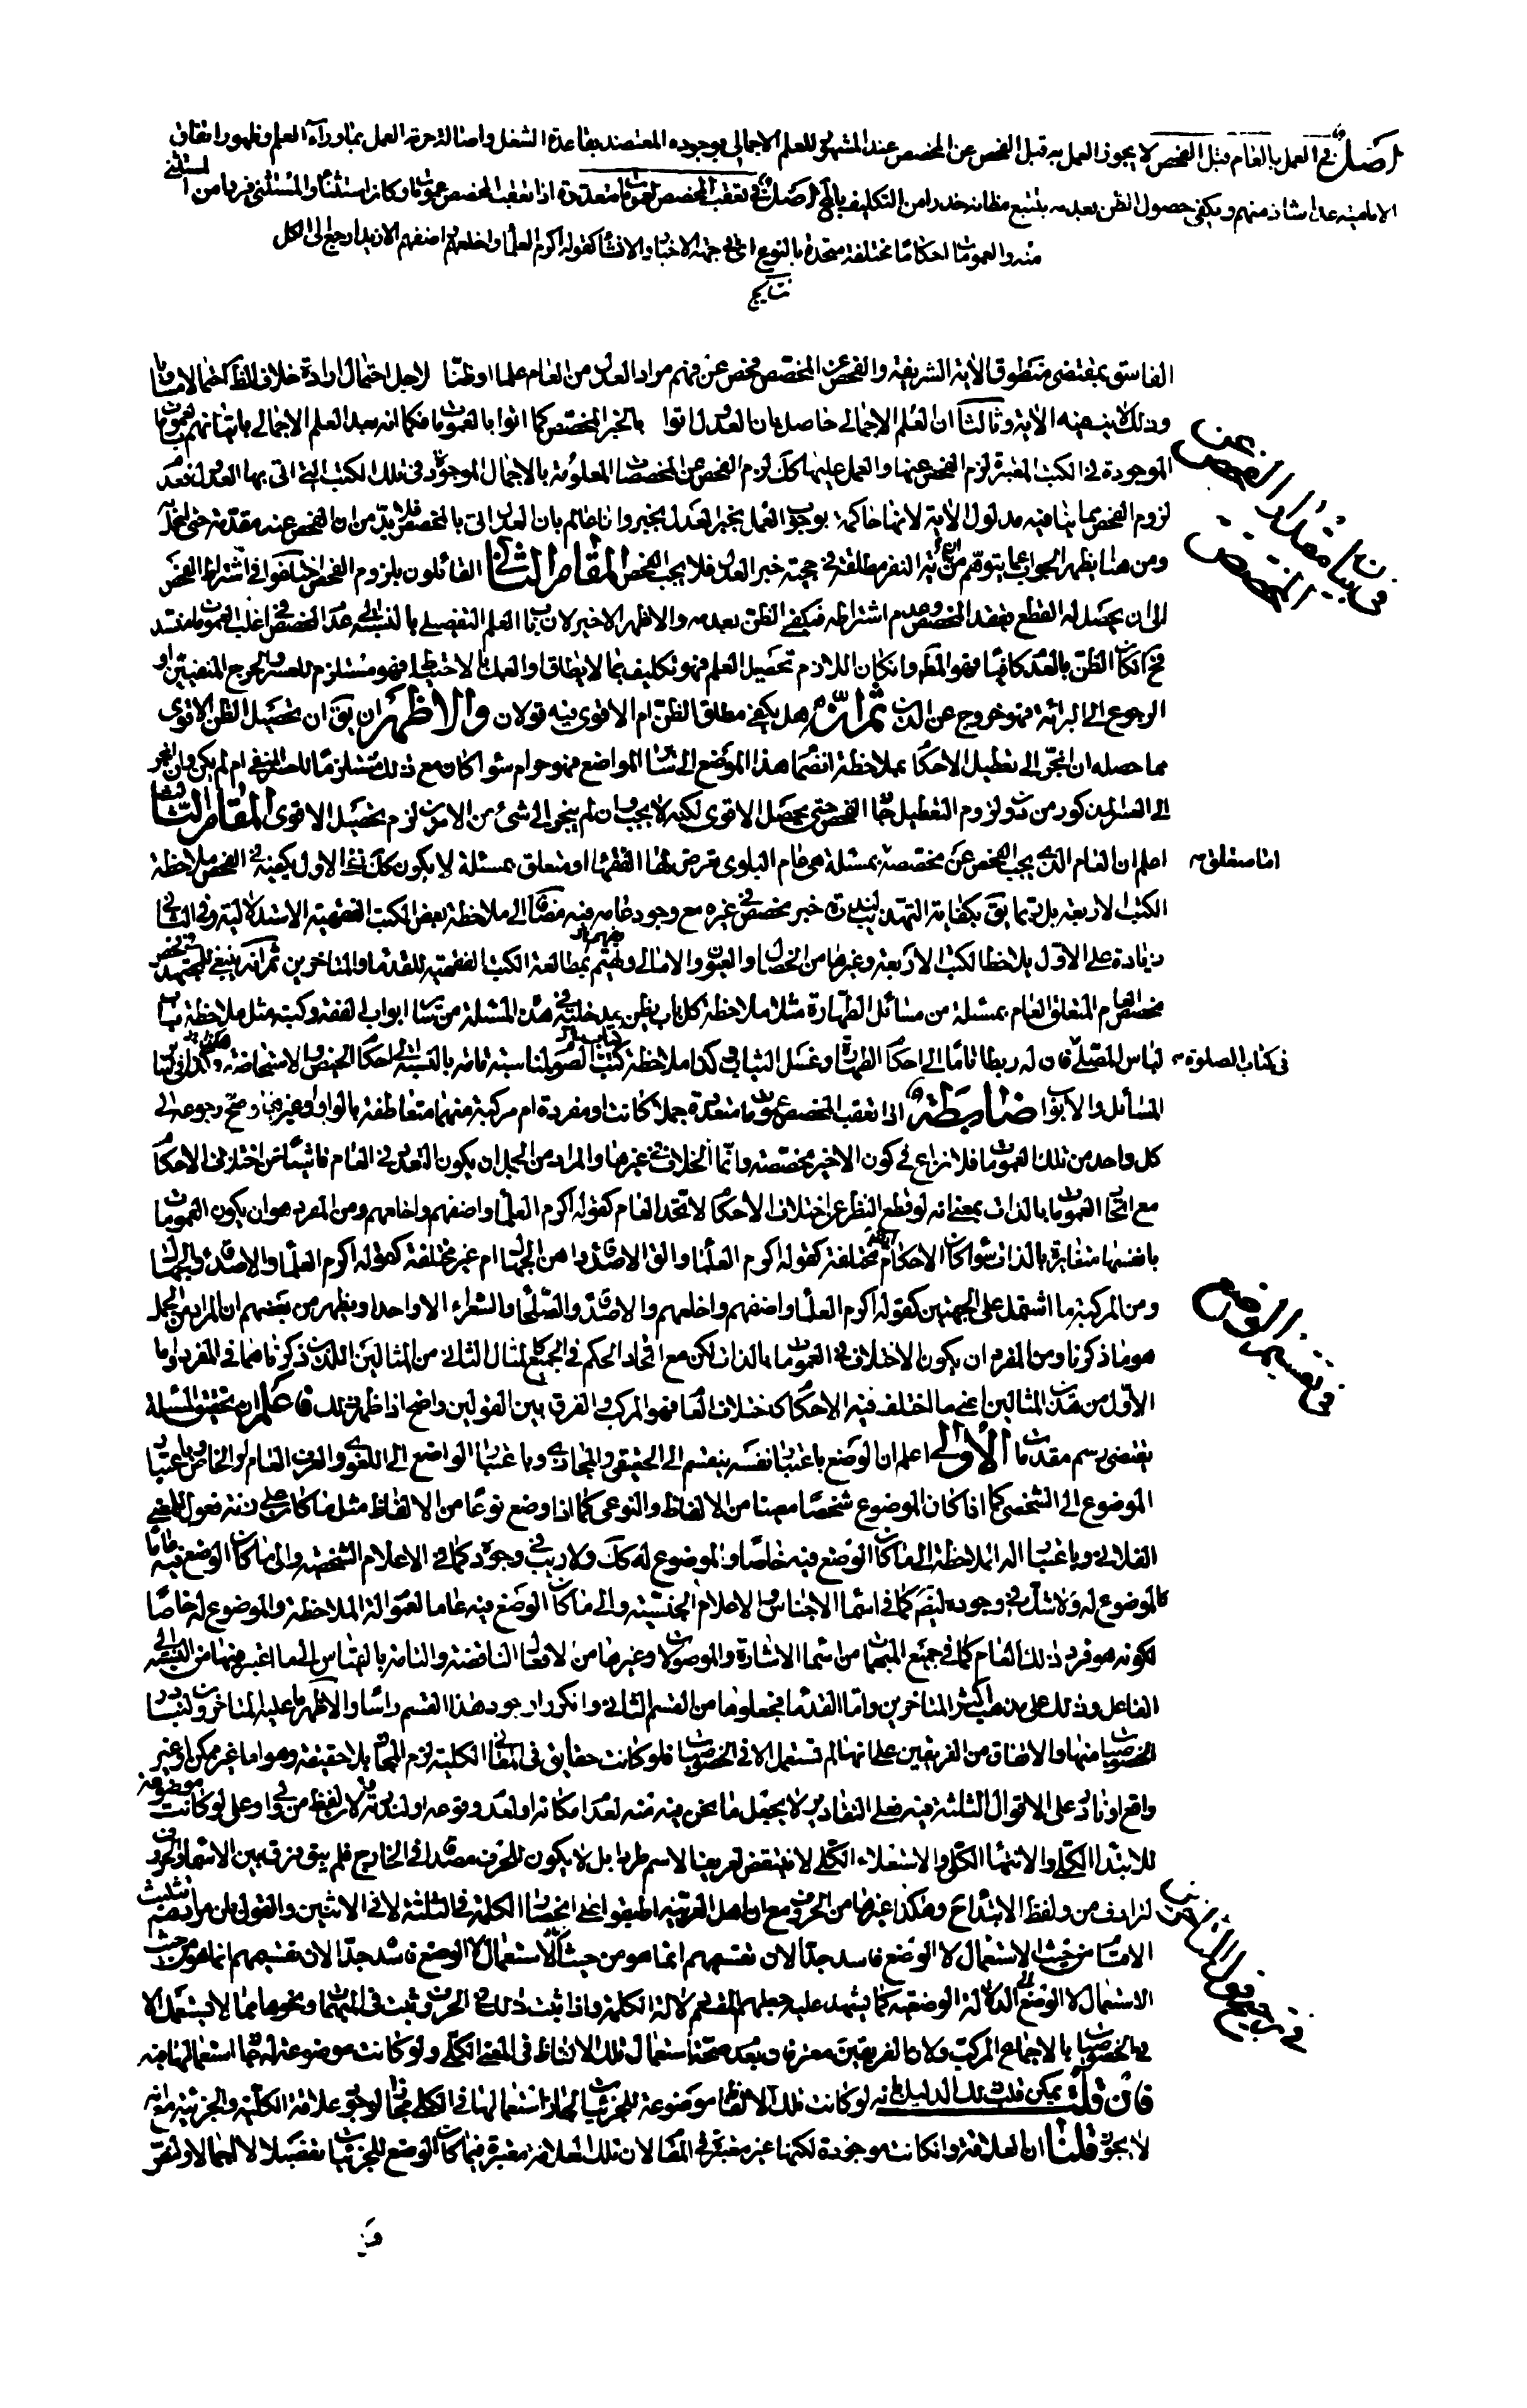 اصل في العمل بالعام قبل الفحص لا يجوز العمل به قبل الفحص عن المخصص عند المشهور للعلم الاجمالي بوجوده المعتضد بقاعدة الشغل واصالة حرمة العمل بماوراء العلم وظهور اتفاق
الامامية عدا شاذ منهم ويكفي حصول الظن بعدمه بتتبع مظانه حذرا من التكليف بالمح اصل في تعقب المخصص لعمومات متعددة اذا تعقب المخصص عمومات وكان استثناء والمستثنى فردا من المستثنى
منه والعمومات احكاما مختلفة متحدة بالنوع اى في جهة الاخبار والانشاء كقوله اكرم العلماء واخلعهم اضفهم الا زيدا رجع الى الكل
نتايج
الفاسق بمقتضى منطوق الاية الشريفة والفحص عن المخصص فحص عن فهم مراد العدل من العام علما او ظنا لاجل احتمال ارادة خلاف الظ
وذلك لا ينفيه الاية وثالثا ان العلم الاجمالي حاصل بان العدول اتوا بالخبر المخصص كما اتوا بالعمومات فكما انه بعد العلم الاجمالي باتيانهم بعمومات
الموجودة في الكتب المعتبرة لزم الفحص عنها والعمل عليها كك لزم الفحص عن المخصصات المعلومة بالاجمال الموجودة في تلك الكتب التي اتى بها العدول فعد
لزوم الفحص مما ينافيه مدلول الاية لانها حاكمة بوجوب العمل بخبر العدل بخبر وانا عالم بان العدل اتى بالمخصص فلا بد من ان الفحص عنه مقدمة حتى
ومن هنا يظهر الجواب عما يتوهم من ان اية النفر مطلقة في حجية خبر العدل فلا يجب الفحص المقام الثاني القائلون بلزوم الفحص اختلفوا في اشتراط الفحص
الى ان يحصل له القطع بفقد المخصص وعدم اشتراطه فيكفي الظن بعدمه والاظهر الاخير لان باب العلم التفصيلي بالنسبة الى عدم المخصص في اغلب العمومات منسد
فح ان كان الظن بالعدم كافيا فهو المط وان كان اللازم تحصيل العلم فهو تكليف بما لا يطاق او العمل بالاحتياط فهو مستلزم للعسر والحرج المنفيين او
الرجوع الى البرائة فهو خروج عن الدين ثم انه هل يكفي مطلق الظن ام الاقوى فيه قولان والاظهر ان يق ان تحصيل الظن الاقوى
مما حصله ان انجر الى تعطيل الاحكام بملاحظة انضمام هذا الموضع الى سائر المواضع فهو حرام سواء كان مع ذلك مستلزما للعسر المنفي ام لم يكن وان انجر
الى العسر المذكور من دون لزوم التعطيل جاز الفحص حتى يحصل الاقوى لكنه لا يجب وان لم ينجر الى شئ من الامرين لزم تحصيل الاقوى المقام الثالث
اعلم ان العام الذي يجب الفحص عن مخصصه اما متعلق بمسئلة هي عام البلوى تعرض لها الفقهاء او متعلق بمسئلة لا يكون كك ففي الاول يكفيه في الفحص ملاحظة
الكتب الاربعة بل ربما يق بكفاية التهذيب لندرة خبر مخصص في غيره مع وجود عامه فيه مضافا الى ملاحظة بعض الكتب الفقهية الاستدلالية وفي الثاني
زيادة على الاول يلاحظ الكتب الاربعة وغيرها من الخصال والعيون والامالي وغيرها ويهتم بمطالعة الكتب الفقهية للقدماء والمتاخرين ثم انه ينبغي للمجتهد في فحص
مخصص العام المتعلق بمسئلة من مسائل الطهارة مثلا ملاحظة كل باب يظن مدخليته في هذه المسئلة من سائر ابواب الفقه وكتبه مثل ملاحظة باب
لباس المصلي في كتاب الصلوة فان له ربطا تاما الى احكام الطهارات وغسل الثياب وكذا ملاحظة كتاب الصوم لمناسبة تامة بالنسبة الى احكام الحيض والاستحاضة وهكذا في سائر
المسائل والابواب ضابطة اذا تعقب المخصص عمومات متعددة جملا كانت او مفردة ام مركبة منهما متعاطفة بالواو او غيرها وصح رجوعه الى
كل واحد من تلك العمومات فلا نزاع في كون الاخير مخصصة وانما الخلاف في غيرها والمراد من الجمل ان يكون التعدد في العام ناشيا من اختلاف الاحكام
مع اتحاد العمومات بالذات بمعنى انه لو قطع النظر عن اختلاف الاحكام لاتحد العام كقوله اكرم العلماء واضفهم واخلعهم ومن المفرد هو ان يكون العمومات
بانفسها متغايرة بالذات سواء كان الاحكام ايضا مختلفة كقوله اكرم العلماء والق الاصدقاء واهن الجهال ام غير مختلفة كقوله اكرم العلماء والاصدقاء والجهال
ومن المركبة ما اشتمل على الجهتين كقوله اكرم العلماء واضفهم واخلعهم والاصدقاء والصلحاء والشعراء الا واحدا ويظهر من بعضهم ان المراد من الجمل
هو ما ذكرنا ومن المفرد ان يكون الاختلاف في العمومات بالذات لكن مع اتحاد الحكم في الجميع كالمثال الثاني من المثالين اللذين ذكرناهما في المفرد واما
الاول من هذين المثالين اعني ما اختلف فيه الاحكام كاختلاف العام فهو المركب والفرق بين القولين واضح اذا ظهر ذلك فاعلم ان تحقيق المسئلة
يقتضي رسم مقدمات الاولى اعلم ان الوضع باعتبار نفسه ينقسم الى الحقيقي والمجازي وباعتبار الواضع الى اللغوي والعرف العام والخاص وباعتبار
الموضوع الى الشخصي كما اذا كان الموضوع شخصا معينا من الالفاظ والنوعي كما اذا وضع نوعا من الالفاظ مثل ما كان على زنة مفعول للمعنى
الفلاني وباعتبار الة الملاحظة الى ما كان الوضع فيه خاصا والموضوع له كك ولا ريب في وجوده كما في الاعلام الشخصية والى ما كان الوضع فيه عاما
كالموضوع له ولا شك في وجوده ايضا كما في اسماء الاجناس والاعلام الجنسية والى ما كان الوضع فيه عاما لعموم الة الملاحظة والموضوع له خاصا
لكونه هو فرد ذلك العام كما في جميع المبهمات من اسماء الاشارة والموصولات وغيرها من الافعال الناقصة والتامة بالقياس الى ما اعتبر فيها من النسبة الى
الفاعل وذلك على مذهب اكثر المتاخرين واما القدماء فجعلوها من القسم الثاني وانكروا وجود هذا القسم راسا والاظهر ما عليه المتاخرون لتبادر
الخصوصيات منها والاتفاق من الفريقين على انها لم تستعمل الا في الخصوصيات فلو كانت حقايق في المعاني الكلية لزم المجاز بلا حقيقة وهو اما غير ممكن او غير
واقع او نادر على الاقوال الثلثة فيه فعلى التقادير لا يجعل ما نحن فيه منه لعدم امكانه او لعدم وقوعه او لندرته ولان لفظ من وفي وعلى لو كانت موضوعة
للابتداء الكلي والانتهاء الكلي والاستعلاء الكلي لانتقض تعريفنا الاسم طردا بل لا يكون للحرف مصداق في الخارج فلم يبق فرق بين الاسماء والحروف
لترادف من ولفظ الابتداء وهكذا غيرها من الحروف مع ان اهل العربية اطبقوا على انحصار الكلمة في الثلثة لا في الاثنين والقول بان مرادهم تثليث
الاقسام من حيث الاستعمال لا الوضع فاسد جدا لان تقسيمهم انما هو من حيث
الاستعمال لا الوضع الى الدلالة الوضعية كما يشهد عليه جعلهم المقسم دلالة الكلمة واذا ثبت ذلك في الحروف ثبت في المبهمات ونحوها مما لا يستعمل الا
في الخصوصيات بالاجماع المركب ولان الفريقين معترفون بعدم صحة استعمال تلك الالفاظ في المعنى الكلي ولو كانت موضوعة له لجاز استعمالها فيه
فان قلت يمكن قلب ذلك الدليل بانه لو كانت تلك الالفاظ موضوعة للجزئيات لجاز استعمالها في الكلي مجازا لوجود علاقة الكلية والجزئية مع انه
لا يجوز قلنا ان العلاقة وان كانت موجودة لكنها غير معتبرة في المقام لان تلك العلاقة معتبرة فيما كان الوضع للجزئيات تفصيلا لا اجمالا ولتقر
في بيان مقدار الفحص عن المخصص
في تقسيم الوضع